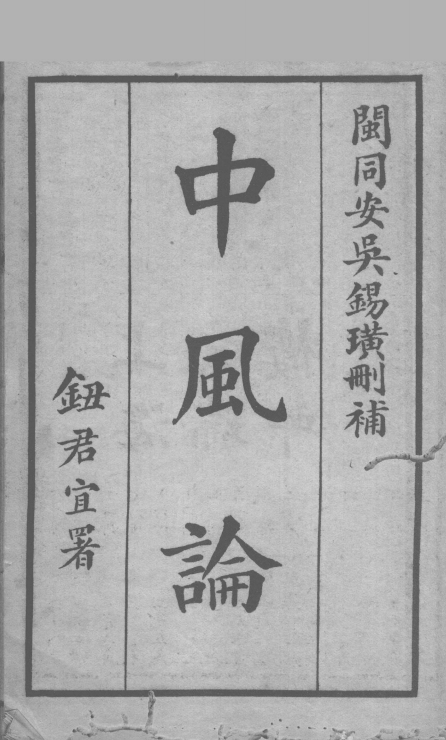 閩同安吳錫璜刪補
中風論
鈕君宜署